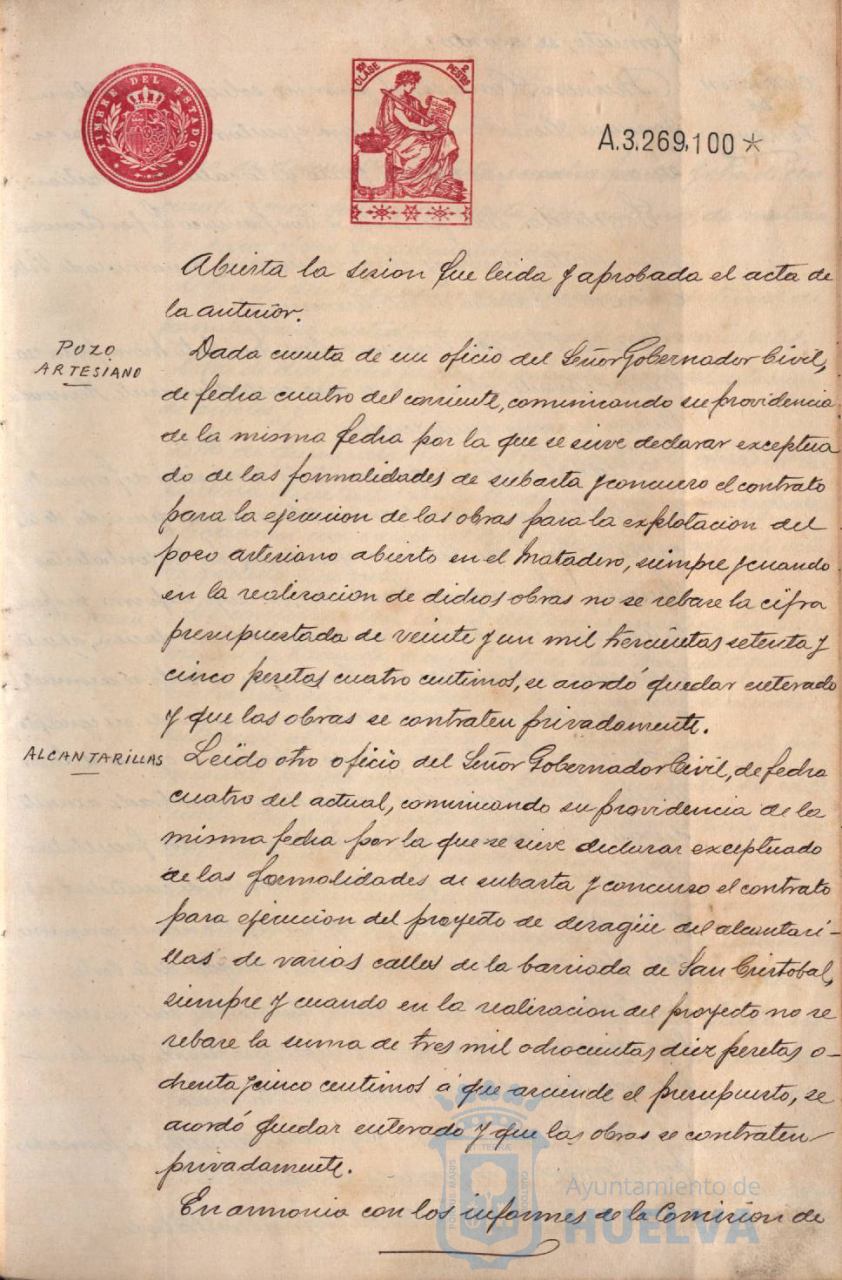 TIMBRE DEL ESTADO
10ª CLASE 2 PESTAS
A.3.269,100 *
Abierta la sesion fue leida y aprobada el acta de
la anterior.
POZO
ARTESIANO
Dada cuenta de un oficio del Señor Gobernador Civil,
de fecha cuatro del corriente, comunicando su providencia
de la misma fecha por la que se sirve declarar exceptua
do de las formalidades de subasta y concurso el contrato
para la ejecucion de las obras para la explotacion del
pozo artesiano abierto en el Matadero, siempre y cuando
en la realizacion de dichas obras no se rebase la cifra
presupuestada de veinte y un mil trescientas setenta y
cinco pesetas cuatro centimos, se acordó quedar enterado
y que las obras se contraten privadamente.
ALCANTARILLAS
Leido otro oficio del Señor Gobernador Civil, de fecha
cuatro del actual, comunicando su providencia de la
misma fecha por la que se sirve declarar exceptuado
de las formalidades de subasta y concurso el contrato
para ejecucion del proyecto de desagüe del alcantari-
llas de varias calles de la barriada de San Cristobal,
siempre y cuando en la realizacion del proyecto no se
rebase la suma de tres mil ochocientas diez pesetas o-
chenta y cinco centimos á que asciende el presupuesto, se
acordó quedar enterado y que las obras se contraten
privadamente.
En armonia con los informes de la Comision de
Ayuntamiento de
HUELVA